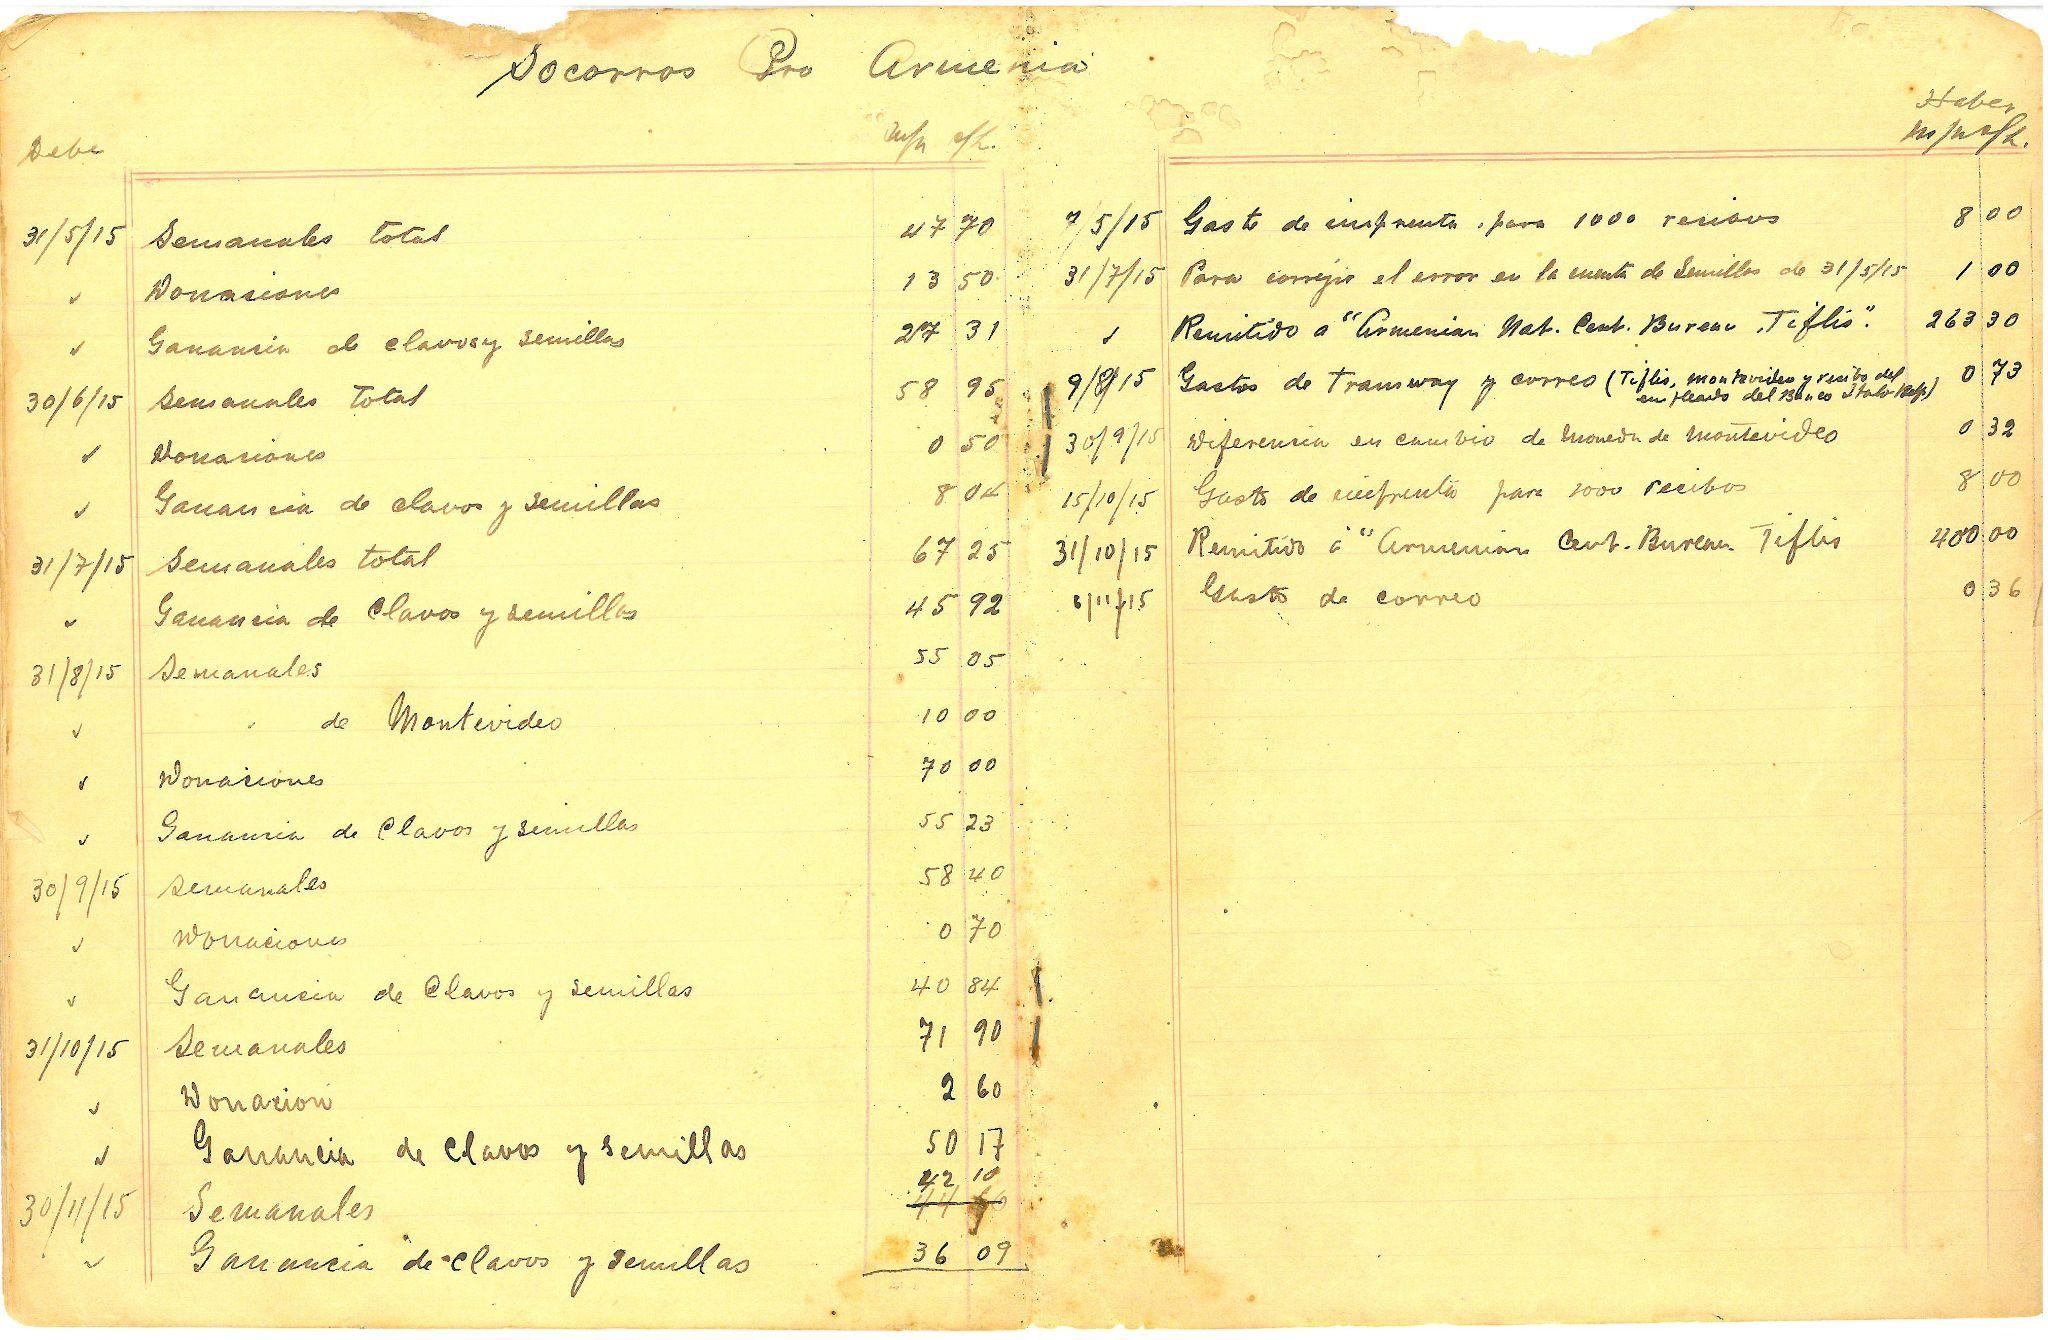 Socorros Pro Armenia
Debe m/n c/l.
31/5/15 Semanales total 47 70
" Donaciones 13 50
" Ganancia de clavos y semillas 27 31
30/6/15 Semanales total 58 95
" Donaciones 0 50
" Ganancia de clavos y semillas 8 04
31/7/15 Semanales total 67 25
" Ganancia de Clavos y semillas 45 92
31/8/15 Semanales 55 05
" " de Montevideo 10 00
" Donaciones 70 00
" Ganancia de Clavos y semillas 55 23
30/9/15 Semanales 58 40
" Donaciones 0 70
" Ganancia de Clavos y semillas 40 84
31/10/15 Semanales 71 90
" Donacion 2 60
" Ganancia de Clavos y semillas 50 17
30/11/15 Semanales 42 10
" Ganancia de clavos y semillas 36 09
Haber
m/n c/l.
7/5/15 Gasto de imprenta para 1000 recibos 8 00
31/7/15 Para correjir el error en la cuenta de Semillas de 31/5/15 1 00
" Remitido a "Armenian Nat. Cent. Bureau, Tiflis". 263 30
9/8/15 Gastos de Tramway y correo (Tiflis, Montevideo y recibo del 0 73
empleado del Banco Italo
30/9/15 Diferencia en cambio de Moneda de Montevideo 0 32
15/10/15 Gasto de imprenta para 1000 recibos 8 00
31/10/15 Remitido á "Armenian Cent. Bureau Tiflis 400 00
/11/15 Gasto de correo 0 36